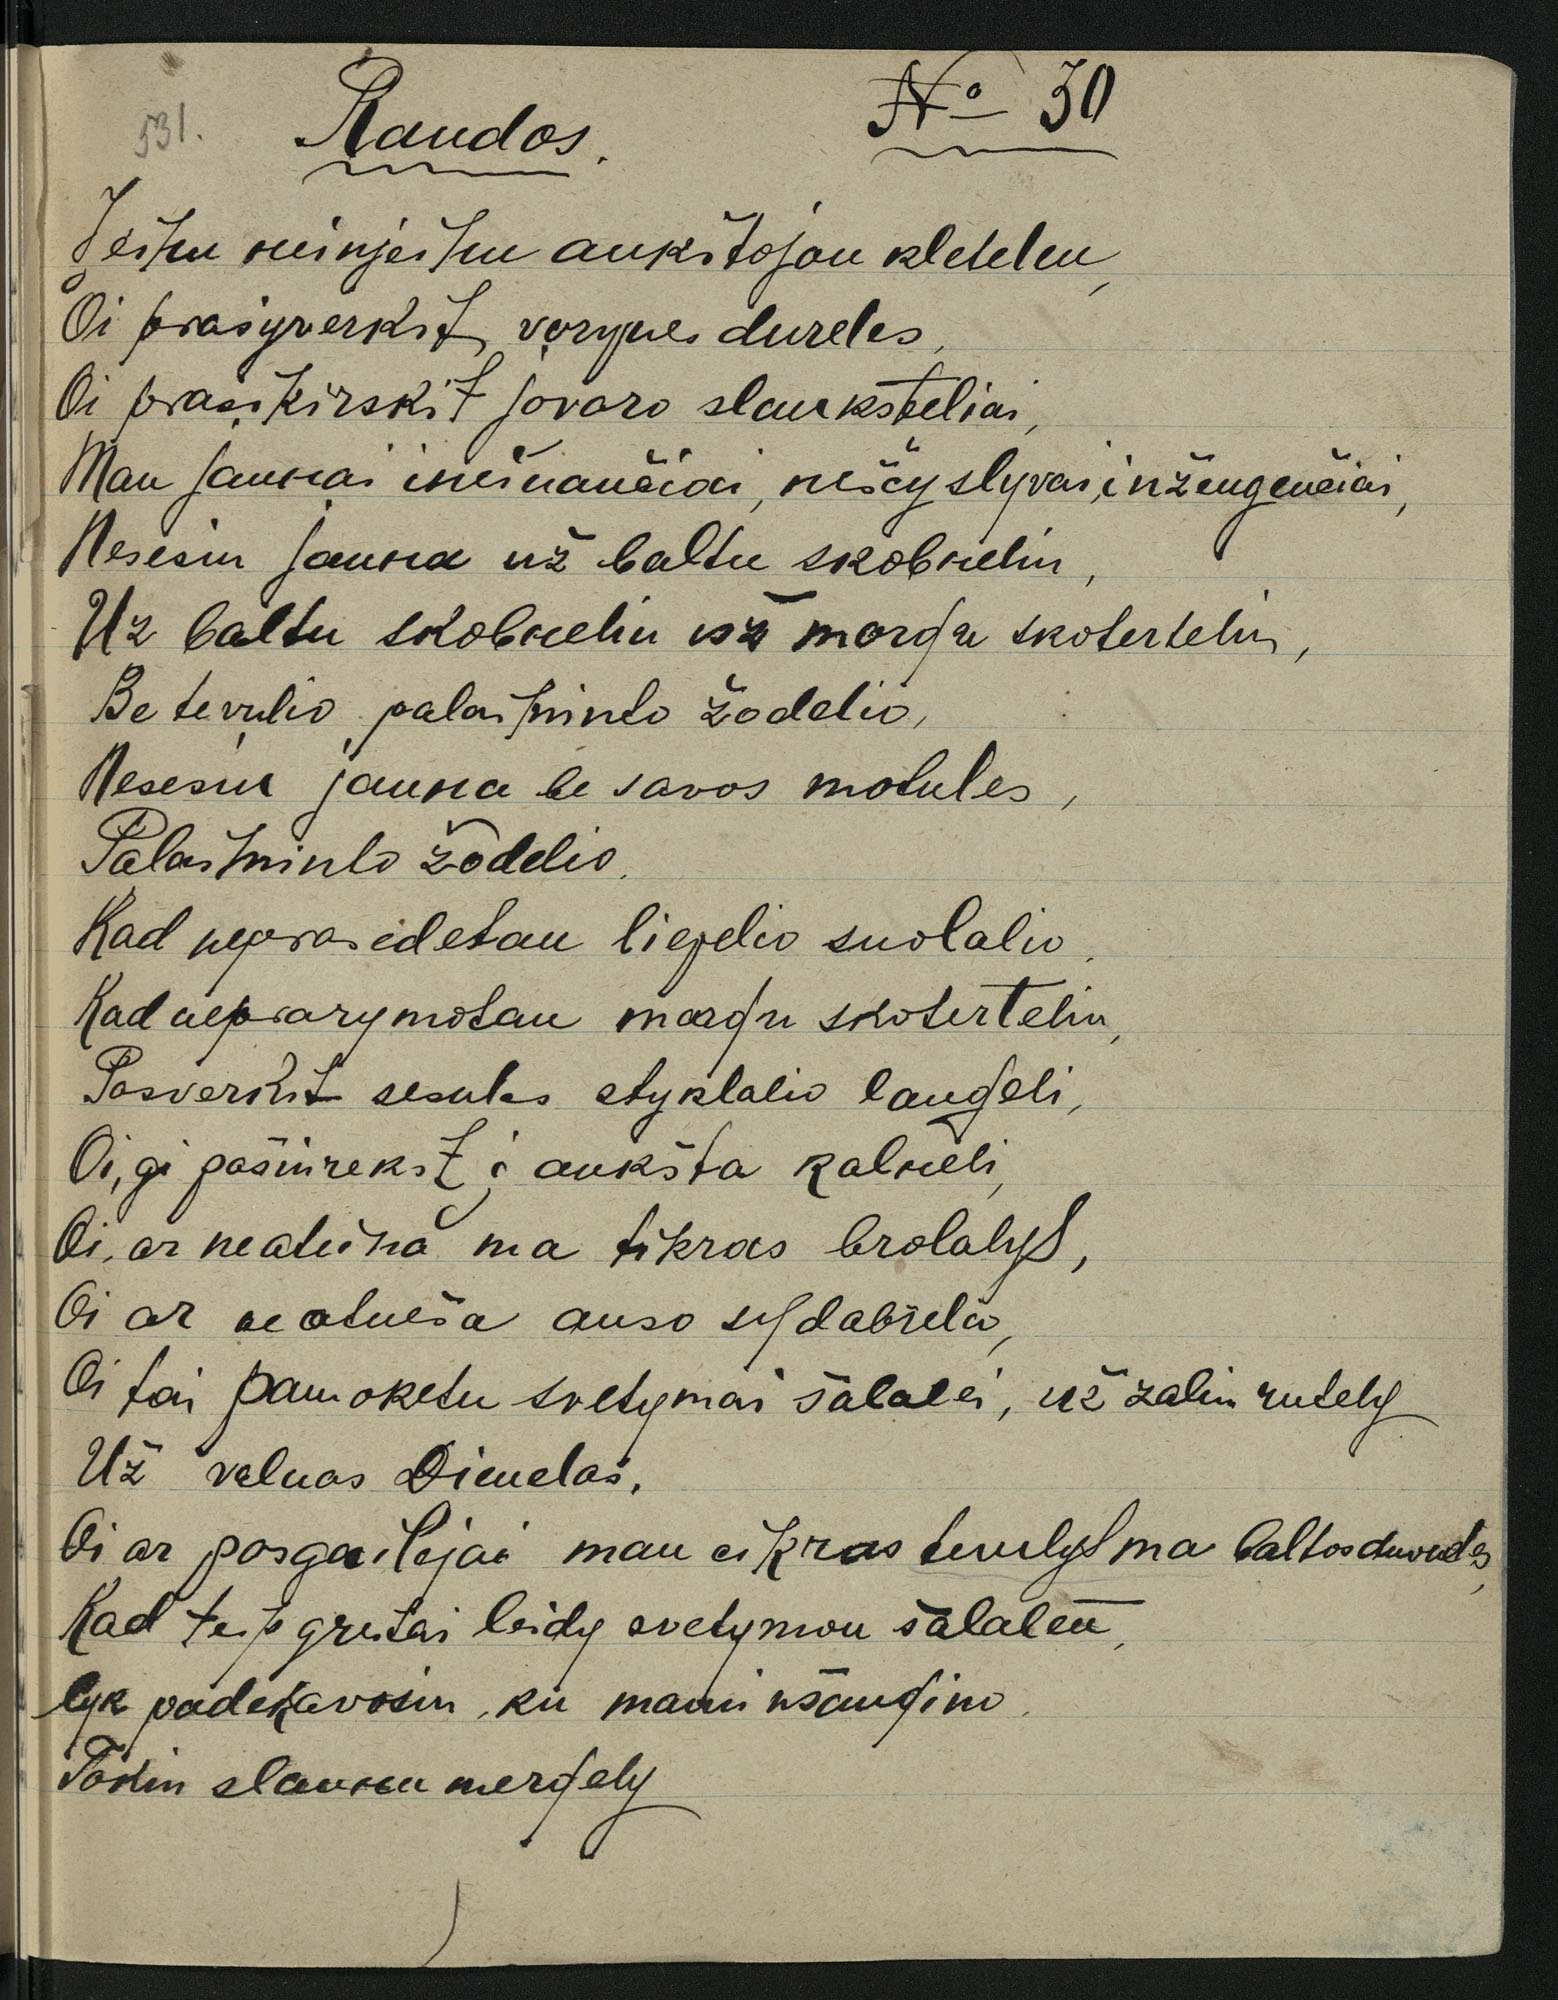 531. Raudos. № 30
Jeisiu neinjeisiu aukštojon kleteleu,
Oi prasyverkit, vorynes dureles,
Oi prasiskirskit jovaro slauksteliai,
Man jaunai ineinančiai, nesčyslyvai, inžengenčiai,
Nesesiu jauna už baltu skobneliu,
Uz baltu skobneliu už morgu skoterteliu,
Be tevulio palaiminto žodelio,
Nesesiu jauna be savos motules,
Palaiminto žodelio.
Kad neprasedetau liepelio suolalio,
Kad neprarymotau morgu skoterteliu,
Pasverkit sesules styklalio langeli,
Oi, gi pašiurekit į aukšta kalneli,
Oi, ar neateina ma tikras brolalys,
Oi ar neatneša auso sydabrelio,
Oi tai pamoketu svetymai šalalei, už zaliu rutely
Už velnas Dienelas.
Oi ar posgailejai man tikras tevulys ma baltos duonules,
Kad teip greitai leidy svetymon šalaleu,
lyk padekavosiu, ku mani užaugino.
Tokiu slaunu mergely